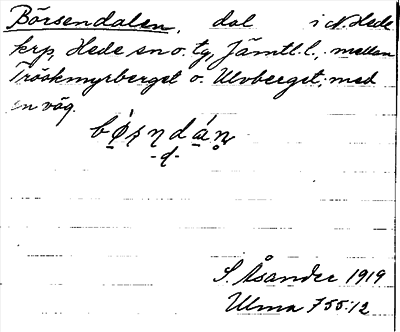 Börsendalen, dal i N. Hede
krp, Hede sn o. tg, Jämtl. l., mellan
Tröökmyrberget o. Ulvberget, med
en väg.
bǿṣṇdáṇ
-d-
S. Åsander 1919
Ulma 755:12